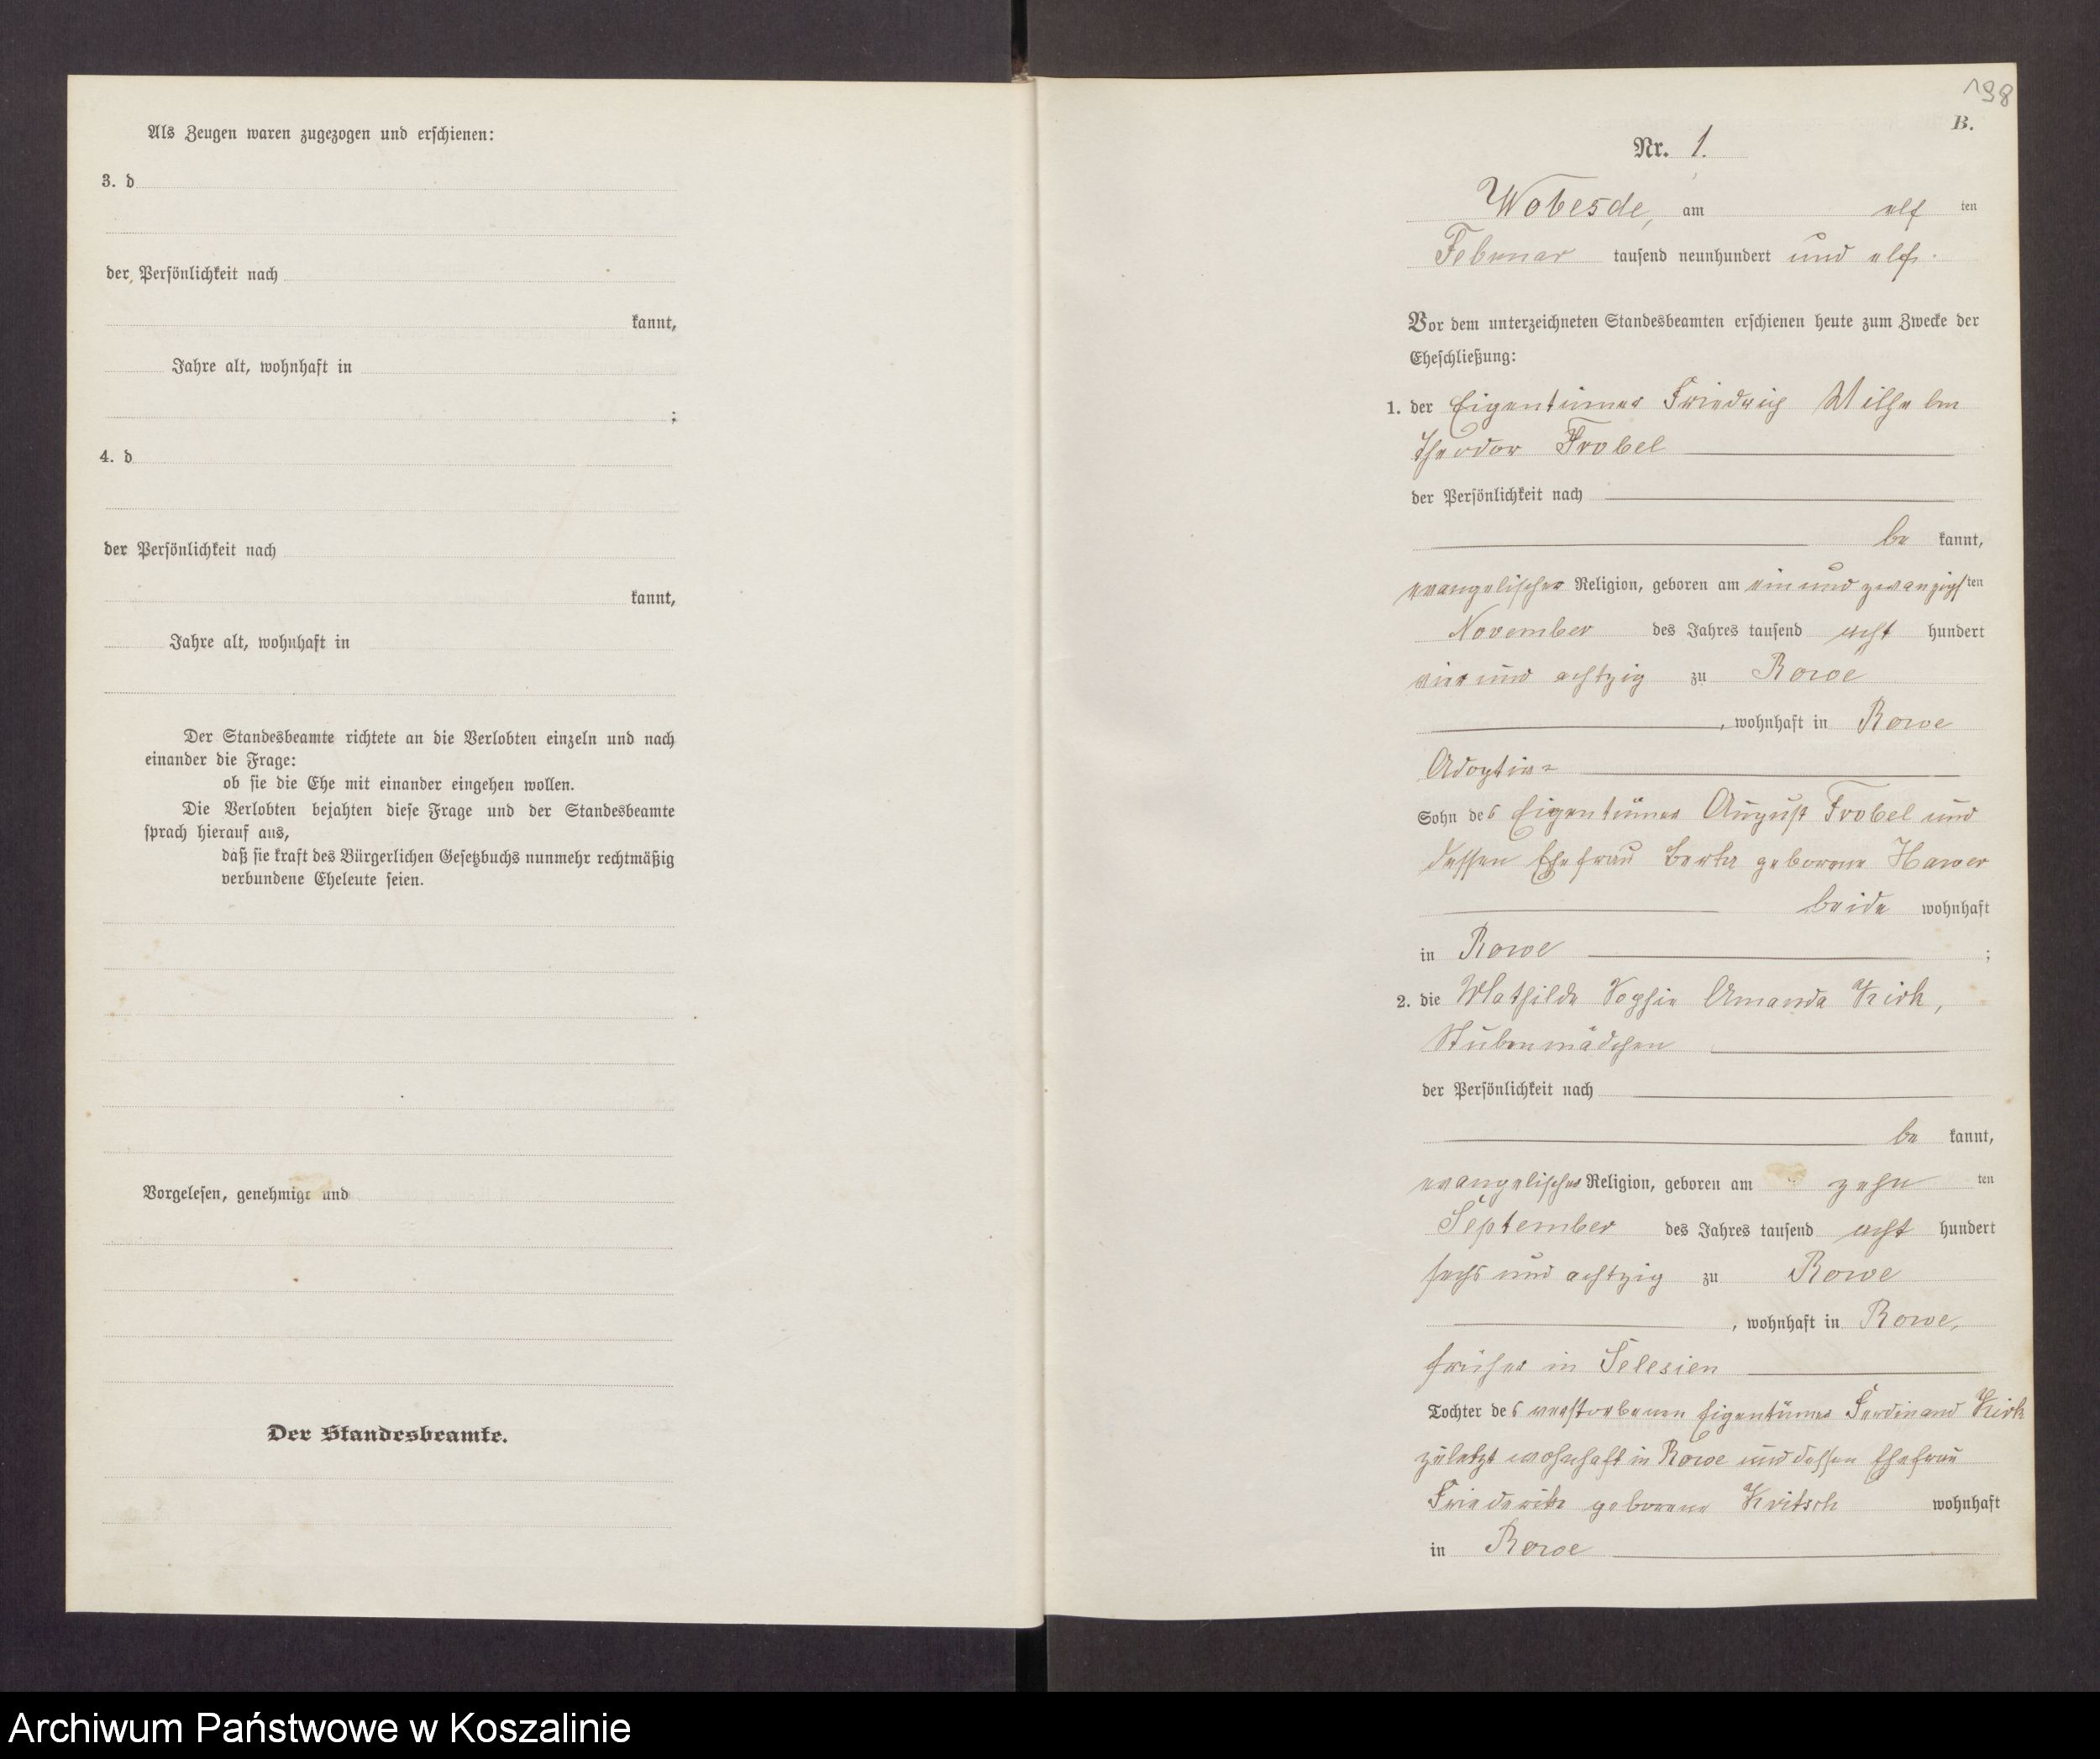 Als Zeugen waren zugezogen und erschienen:
3. d
der Persönlichkeit nach
kannt,
Jahre alt, wohnhaft in
;
4. d
der Persönlichkeit nach
kannt,
Jahre alt, wohnhaft in
Der Standesbeamte richtete an die Verlobten einzeln und nach
einander die Frage:
ob sie die Ehe mit einander eingehen wollen.
Die Verlobten bejahten diese Frage und der Standesbeamte
sprach hierauf aus,
daß sie kraft des Bürgerlichen Gesetzbuchs nunmehr rechtmäßig
verbundene Eheleute seien.
Vorgelesen, genehmigt und
Der Standesbeamte.
198
B.
Nr. 1.
Wobesde, am elf ten
Februar tausend neunhundert und elf.
Vor dem unterzeichneten Standesbeamten erschienen heute zum Zwecke der
Eheschließung:
1. der Eigentümer Friedrich Wilhelm
Theodor Frobel
der Persönlichkeit nach
be kannt,
evangelischer Religion, geboren am einundzwanzigsten
November des Jahres tausend acht hundert
vier und achtzig zu Rowe
, wohnhaft in Rowe
Adoptiv=
Sohn des Eigentümer August Frobel und
dessen Ehefrau Berta geborene Hawer
beide wohnhaft
in Rowe ;
2. die Mathilde Sophie Amanda Kirk,
Stubenmädchen
der Persönlichkeit nach
be kannt,
evangelischer Religion, geboren am zehn ten
September des Jahres tausend acht hundert
sechs und achtzig zu Rowe
, wohnhaft in Rowe,
früher in Selesien
Tochter des verstorbenen Eigentümer Ferdinand Kirk
zuletzt wohnhaft in Rowe und dessen Ehefrau
Friederike geborene Kritsch wohnhaft
in Rowe
Archiwum Państwowe w Koszalinie